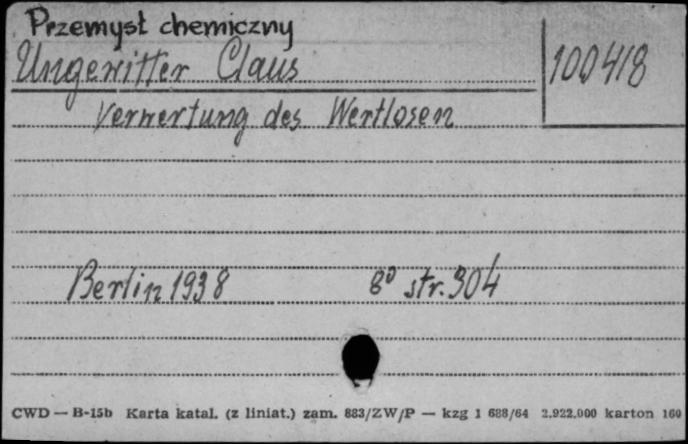 Przemysł chemiczny
Ungewitter Claus 100418
Verwertung des Wertlosen
Berlin 1938 8° str. 304
CWD — B-15b Karta katal. (z liniat.) zam. 883/ZW/P — kzg 1 688/64 2.922.000 karton 160